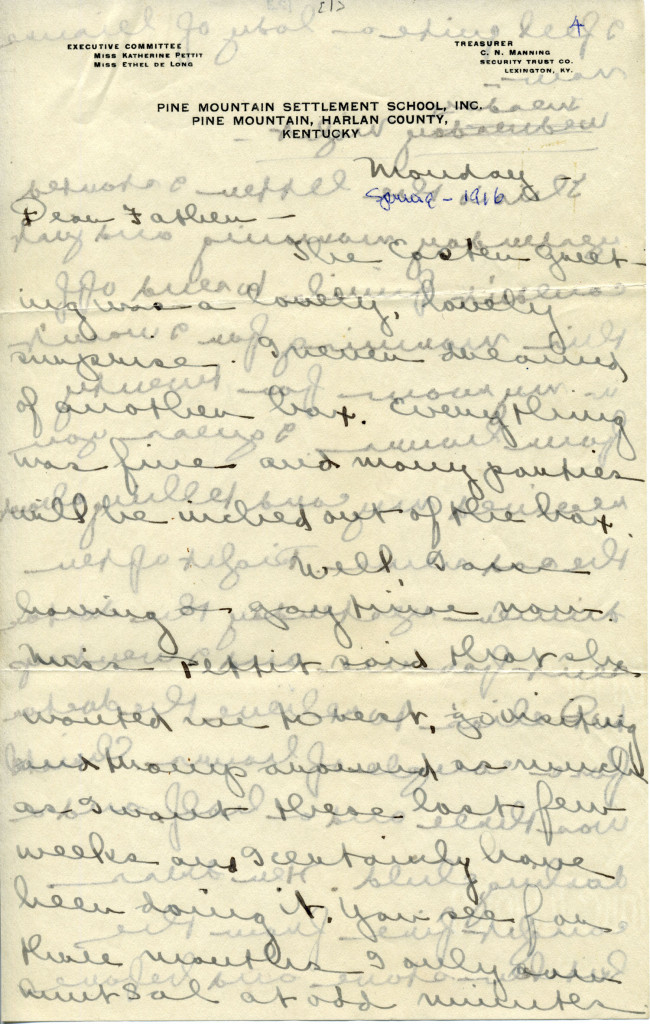 4
EXECUTIVE COMMITTEE
MISS KATHERINE PETTIT
MISS ETHEL DE LONG
TREASURER
C. N. MANNING
SECURITY TRUST CO.
LEXINGTON, KY.
PINE MOUNTAIN SETTLEMENT SCHOOL, INC.
PINE MOUNTAIN, HARLAN COUNTY,
KENTUCKY
Monday -
Spring - 1916
Dear Father -
The Easter greet-
ing was a lovely, lovely
surprise. I never dreamed
of another box. Everything
was fine and many parties
will be inched out of the box.
Well, I am
having a gay time now.
Miss Pettit said that she
wanted me to rest, go visiting
and tromp around as much
as I want these last few
weeks and I certainly have
been doing it. You see for
three months I only saw
Aunt Sal at odd minutes